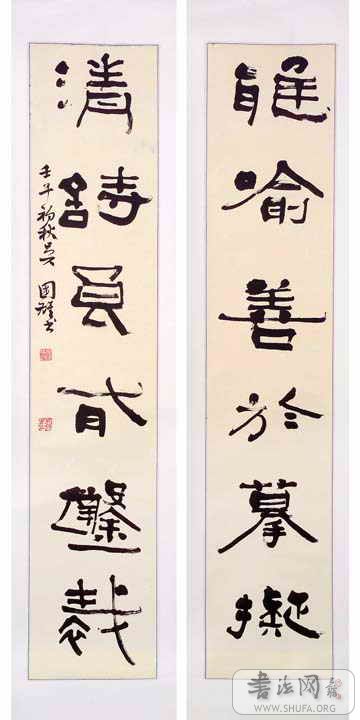 能喻善於摹擬
清詩具有鑒裁
壬午初秋吳國書
書法网
WWW.SHUFA.ORG